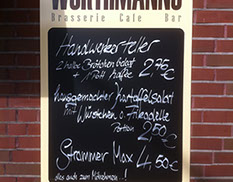 WORTHMANNS
Brasserie Cafe Bar
Handwerkerteller
2 halbe Brötchen belegt
+ 1 Pott Kaffee 2,95 €
Hausgemachter Kartoffelsalat
mit Würstchen o. Frikadelle
Portion 2,50 €
Strammer Max 4,50 €
alles auch zum Mitnehmen..!